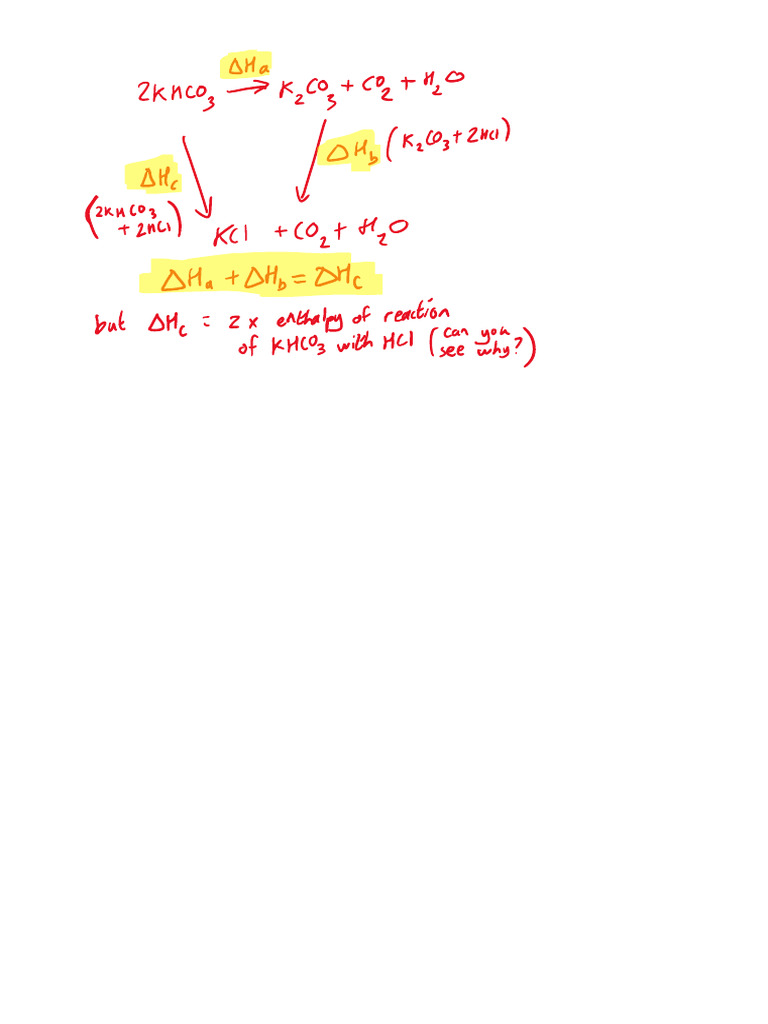 ΔHa
2KHCO₃ → K₂CO₃ + CO₂ + H₂O
ΔHb (K₂CO₃ + 2HCl)
ΔHc
(2KHCO₃
+ 2HCl)
KCl + CO₂ + H₂O
ΔHa + ΔHb = ΔHc
but ΔHc = 2 x enthalpy of reaction
of KHCO₃ with HCl (can you
see why?)